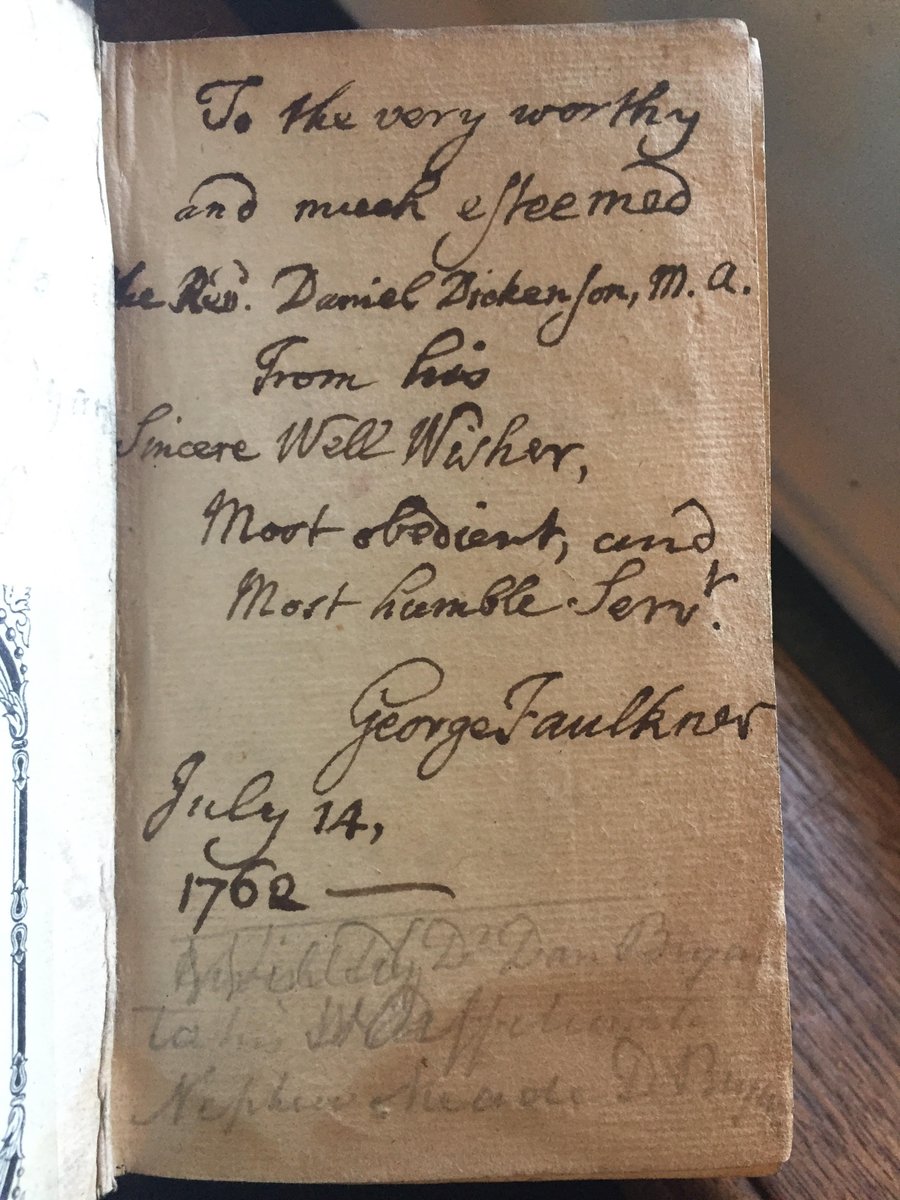 To the very worthy
and much eſteemed
the Revd. Daniel Dickenſon, M. A.
From his
Sincere Well Wisher,
Most obedient, and
Most humble Servt.
George Faulkner
July 14,
1762 —
Dr Dan Bryan
to his
Nephew Meade D Bryan